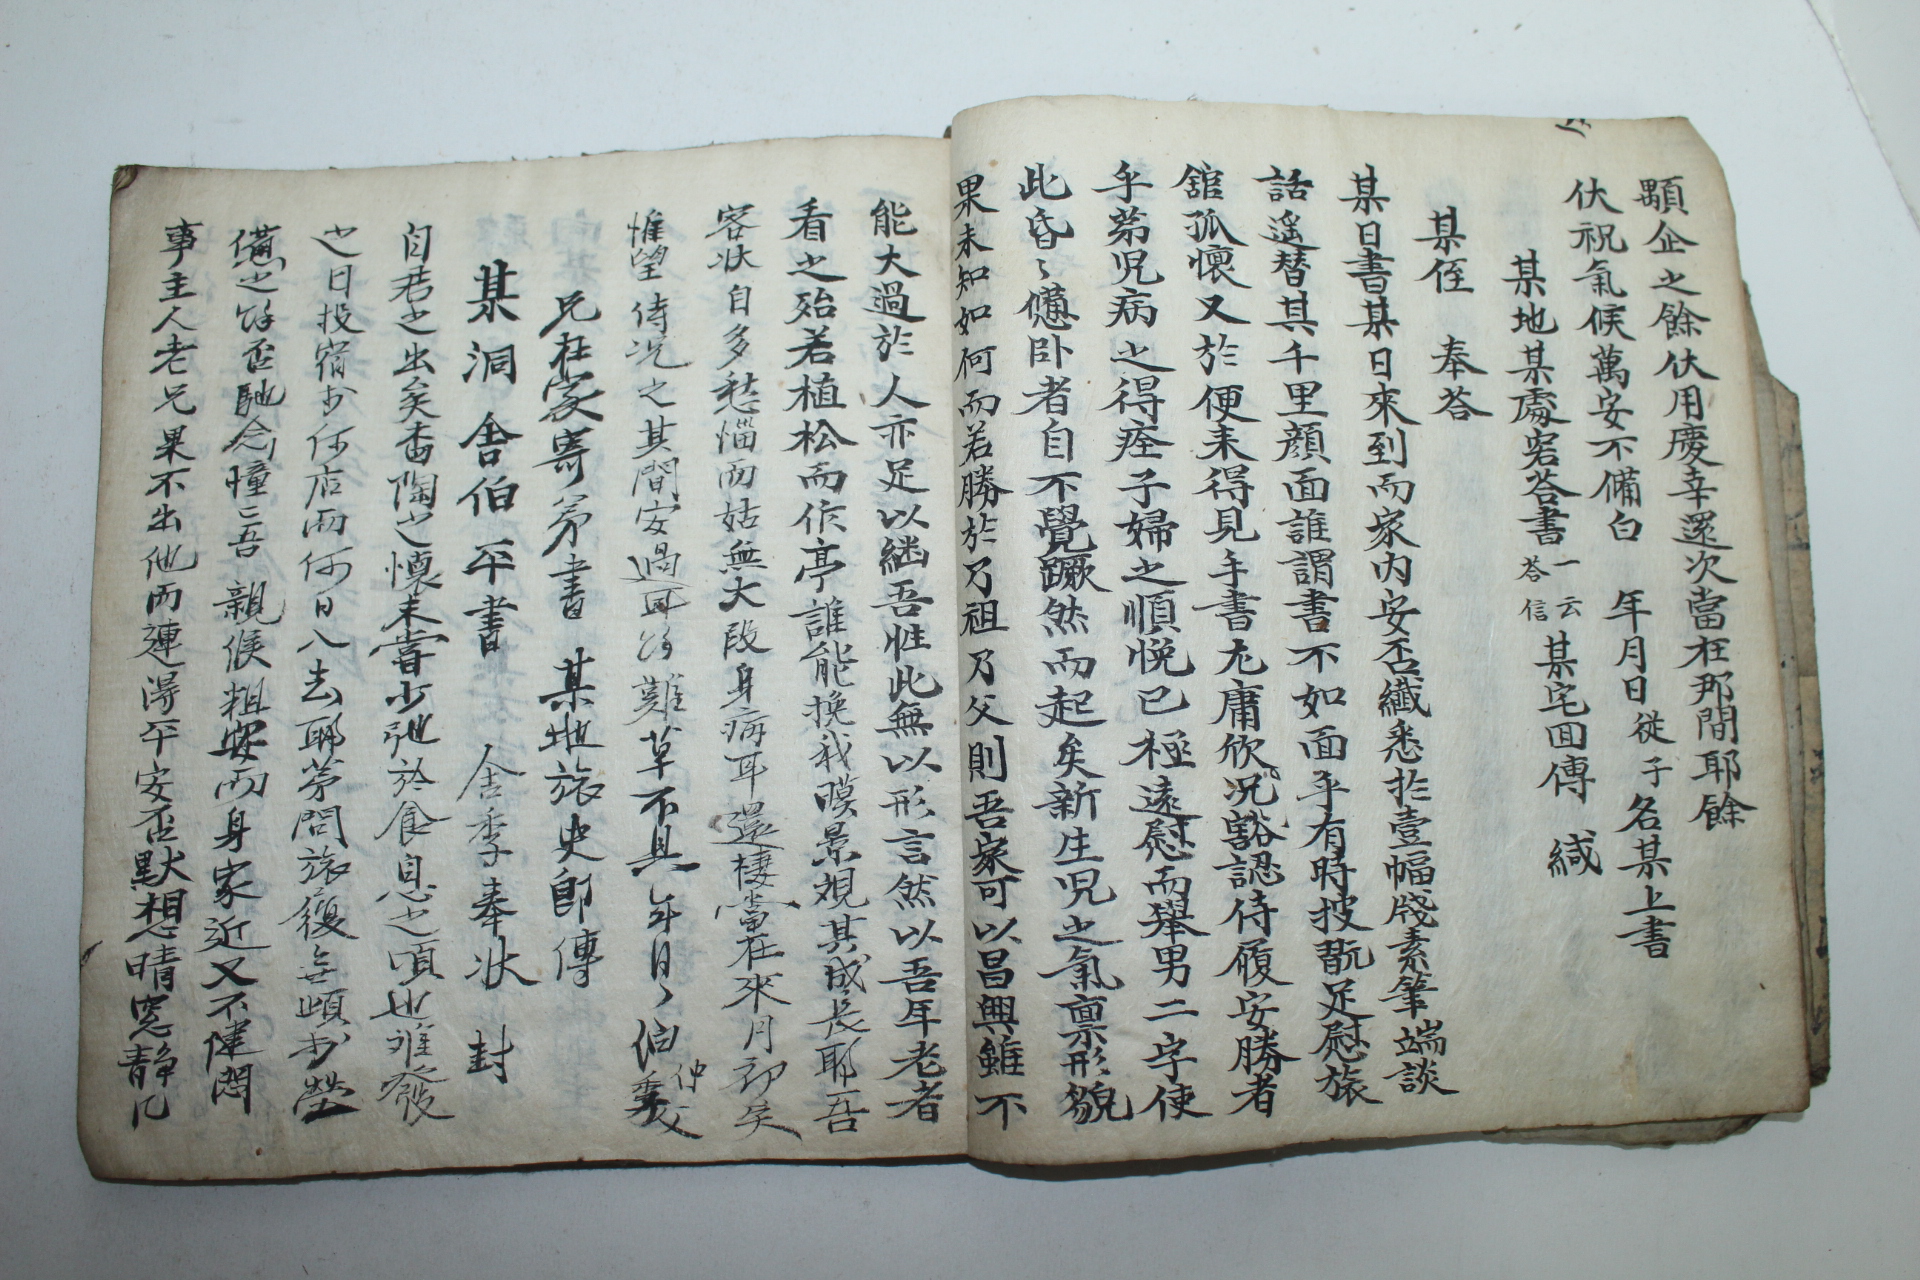 顒企之餘伏用慶幸還次當在那間耶餘
伏祝氣候萬安不備白 年月日從子名某上書
某地某處宕答書 一云答信 某宅回傳 緘
某侄 奉答
某日書某日來到而家內安否纖悉於壹幅牋素筆端談
話遙替其千里顔面誰謂書不如面乎有時披翫足慰旅
舘孤懷又於便来得見手書尤庸欣况諗認侍履安勝者
乎苐児病之得痊子婦之順悅已極遠慰而舉男二字使
此昏〻憊卧者自不覺蹶然而起矣新生児之氣禀形貌
果未知如何而若勝於乃祖乃父則吾家可以昌興雖不
能大過於人亦足以繼吾性此無以形言然以吾年老者
看之殆若植松而作亭誰能挽我暎景覩其成長耶吾
客状自多愁惱而姑無大段身病耳還棲當在來月初矣
惟望侍况之其間安過耳餘難草不具 年月〻 伯仲父
兄在家寄弟書 某地旅史即傳
某洞舍伯平書 舍季奉状 封
自君之出矣杳陶之懷未嘗少弛於食息之頃也離發
之日投宿於何店而何日入去耶苐問旅履無頉於勞
憊之餘否馳念憧〻吾 親候粗安而身家近又不健悶
事主人老兄果不出他而連得平安否默想晴窓静几